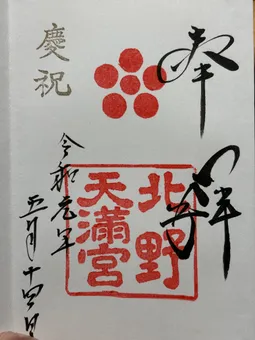 奉拝
北野
天満宮
慶祝
令和元年
五月十四日